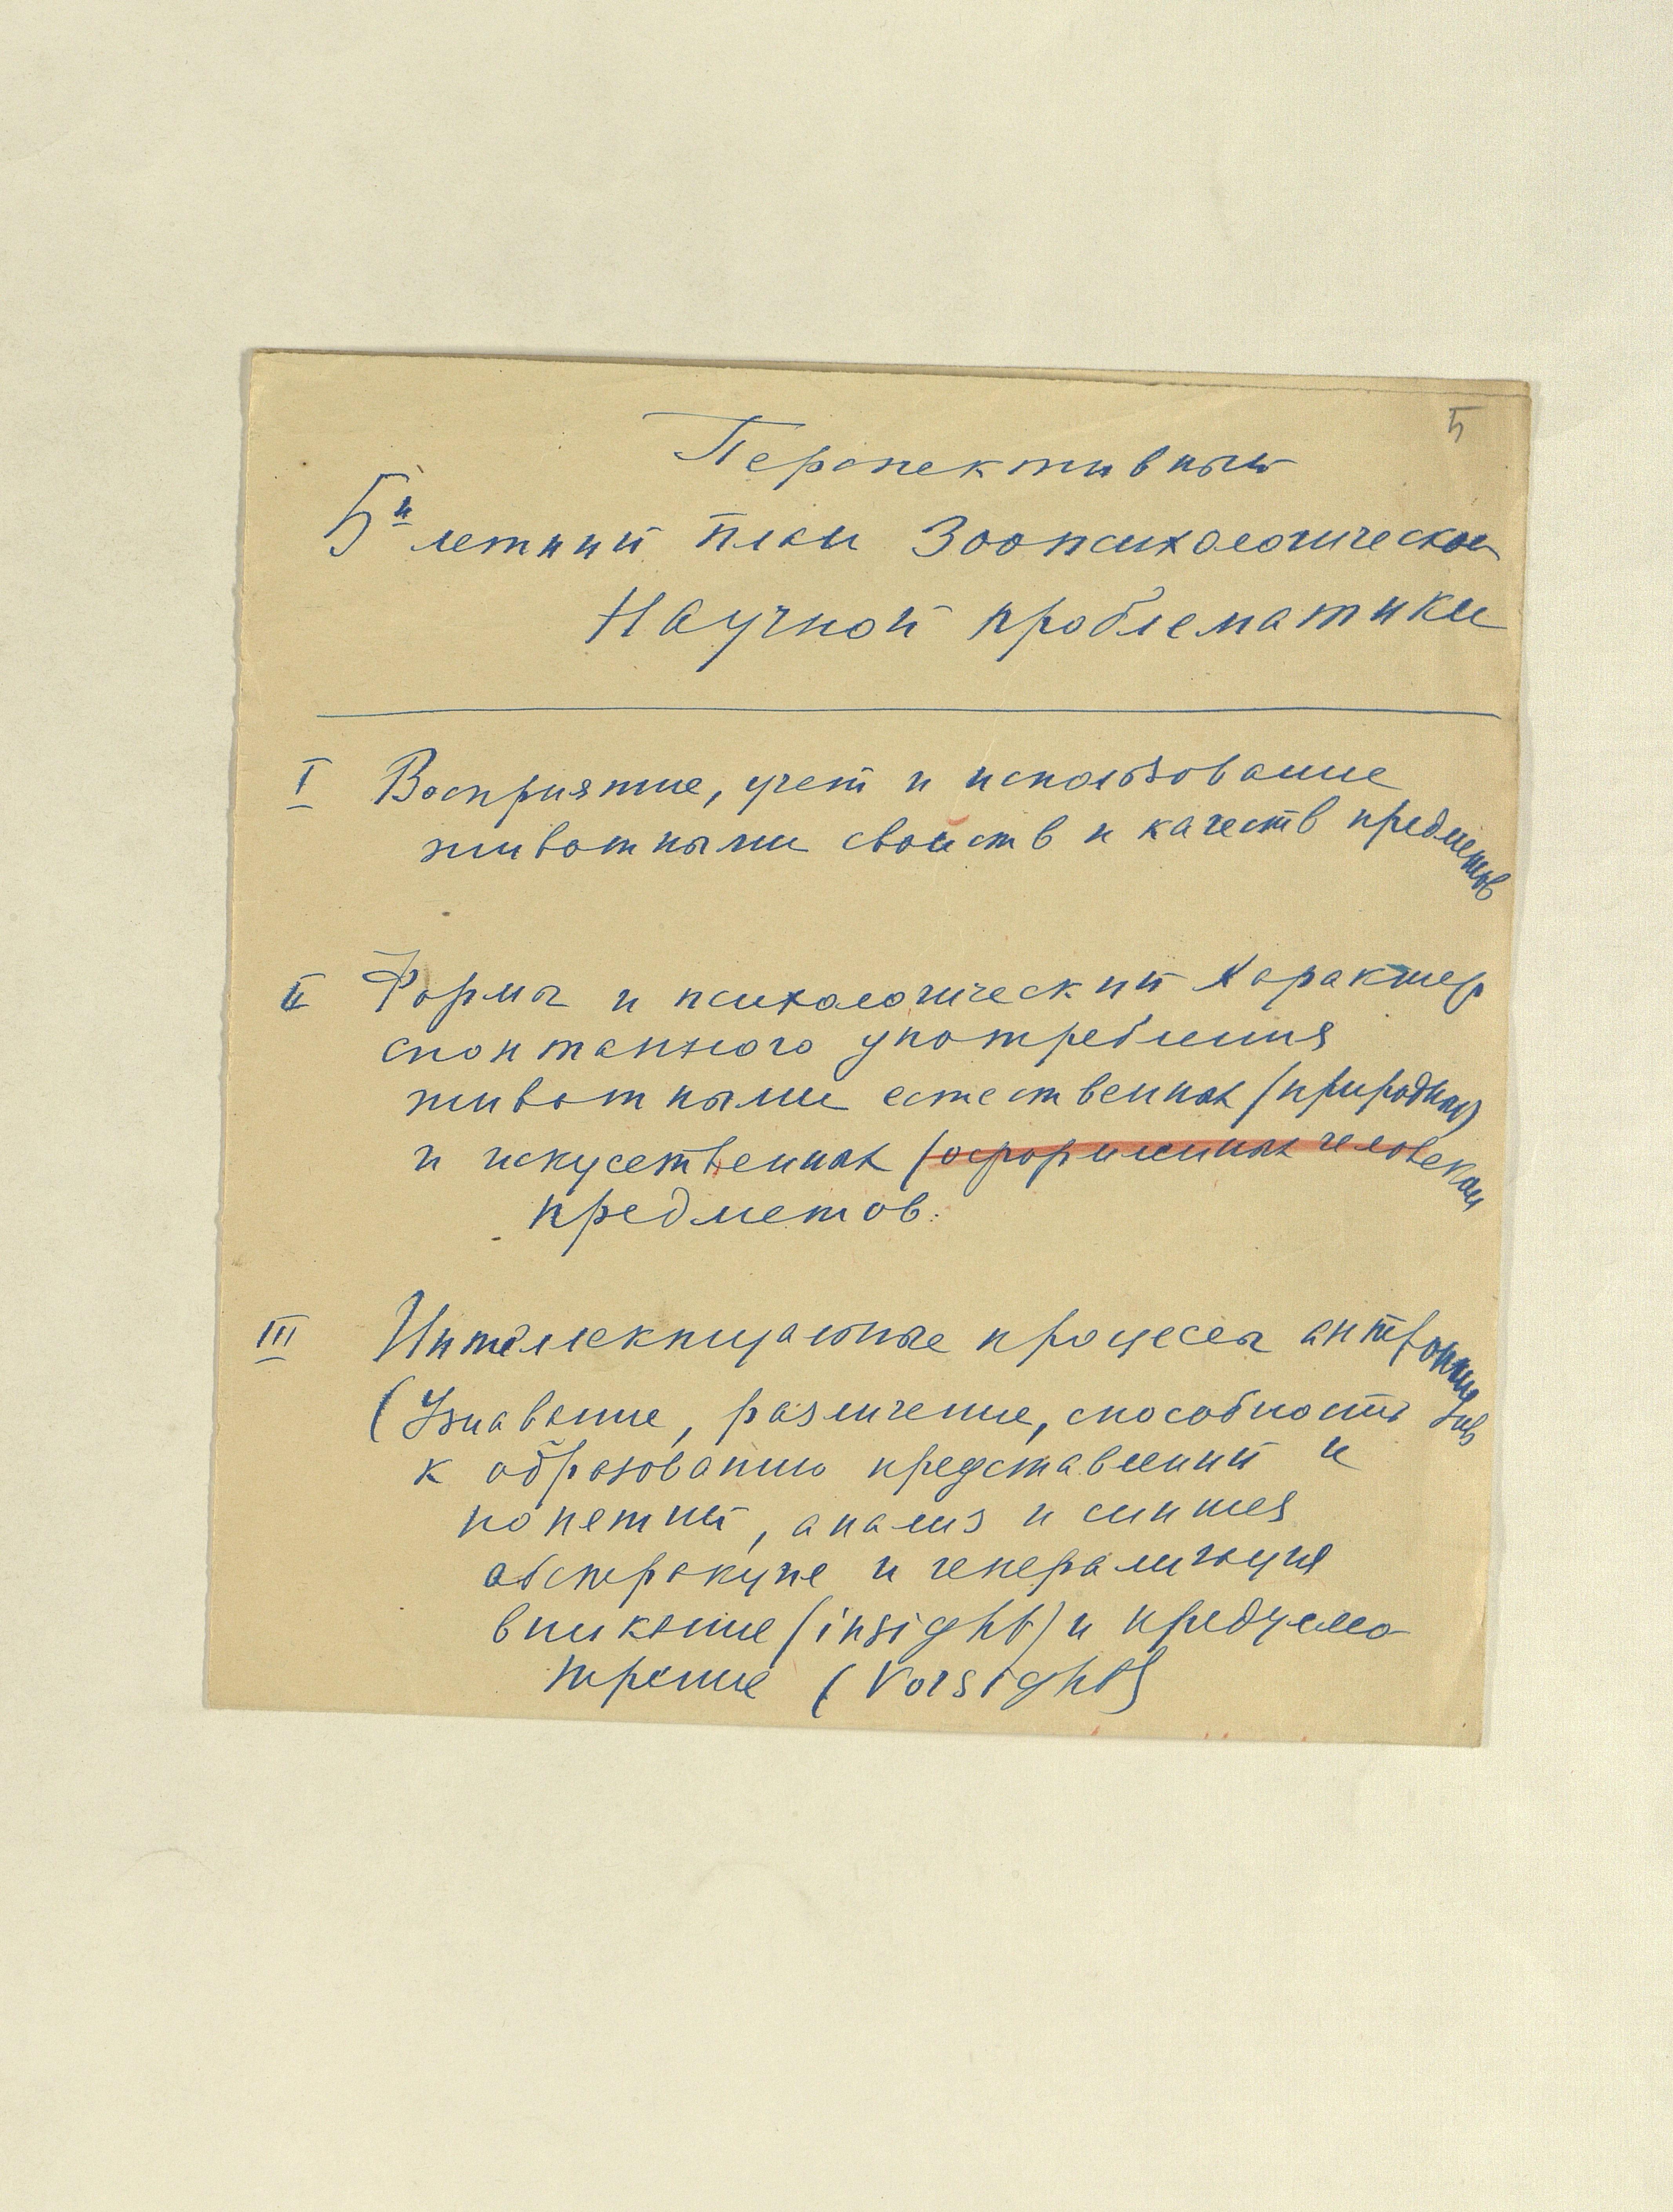 5
Перспективный
5й летний план Зоопсихологической
Научной проблематики
I Восприятие, учет и использование
животными свойств и качеств предметов
II Формы и психологический характер
спонтанного употребления
животными естественных (природных)
и искусственных (оформленных человеком
предметов.
III Интеллектуальные процессы антропоидов
(Узнавание, различение, способность
к образованию представлений и
понятий, анализ и синтез
абстракция и генерализация
вникание (insight) и предусмо
трение (Vorsight)